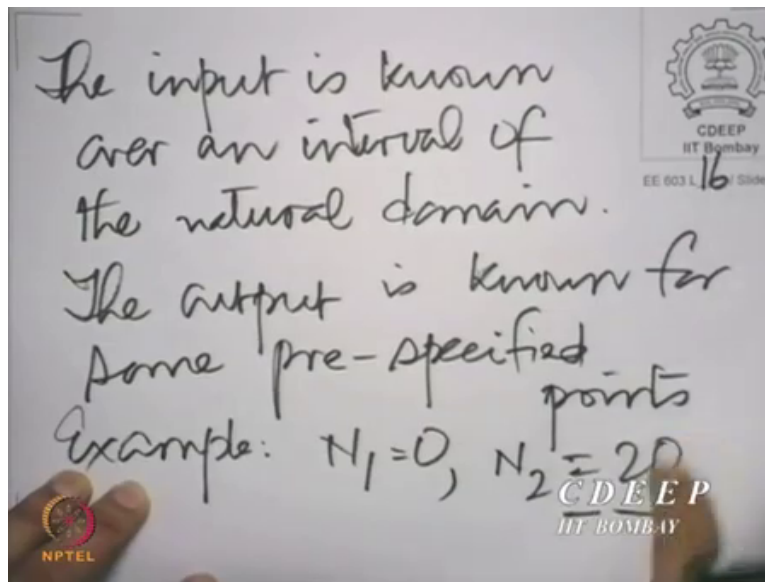 The input is known
over an interval of
the natural domain.
The output is known for
some pre-specified
points
Example: N₁=0, N₂=20
CDEEP
IIT Bombay
EE 603 L 16 / Slide
CDEEP
IIT BOMBAY
NPTEL